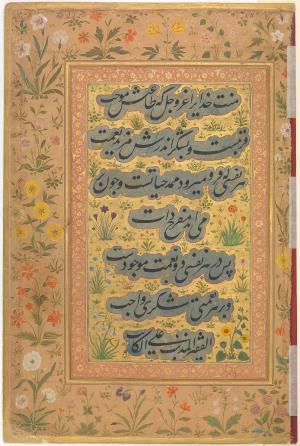 منت خدایرا عز و جل که طاعتش موجب
قربتست و بشکر اندرش مزید نعمت
هر نفسی که فرو میرود ممد حیاتست و چون
می آید مفرح ذات
پس در هر نفسی دو نعمت موجودست
و بر هر نعمتی شکری واجب
الفقیر المذنب علی الکاتب